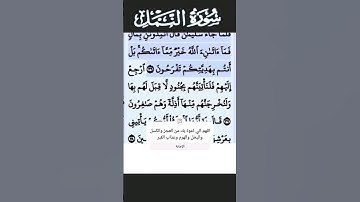 سُورَةُ النَّمْلِ
فَلَمَّا جَآءَ سُلَيْمَٰنَ قَالَ أَتُمِدُّونَنِ بِمَالٍ
فَمَآ ءَاتَىٰنِۦَ ٱللَّهُ خَيْرٌ مِّمَّآ ءَاتَىٰكُم بَلْ
أَنتُم بِهَدِيَّتِكُمْ تَفْرَحُونَ ٱرْجِعْ
إِلَيْهِمْ فَلَنَأْتِيَنَّهُم بِجُنُودٍ لَّا قِبَلَ لَهُم بِهَا
وَلَنُخْرِجَنَّهُم مِّنْهَآ أَذِلَّةً وَهُمْ صَٰغِرُونَ
قَالَ يَأْتِينِى
اللهم اني اعوذ بك من العجز والكسل
والبخل والهرم وعذاب القبر
بِعَرْشِهَا